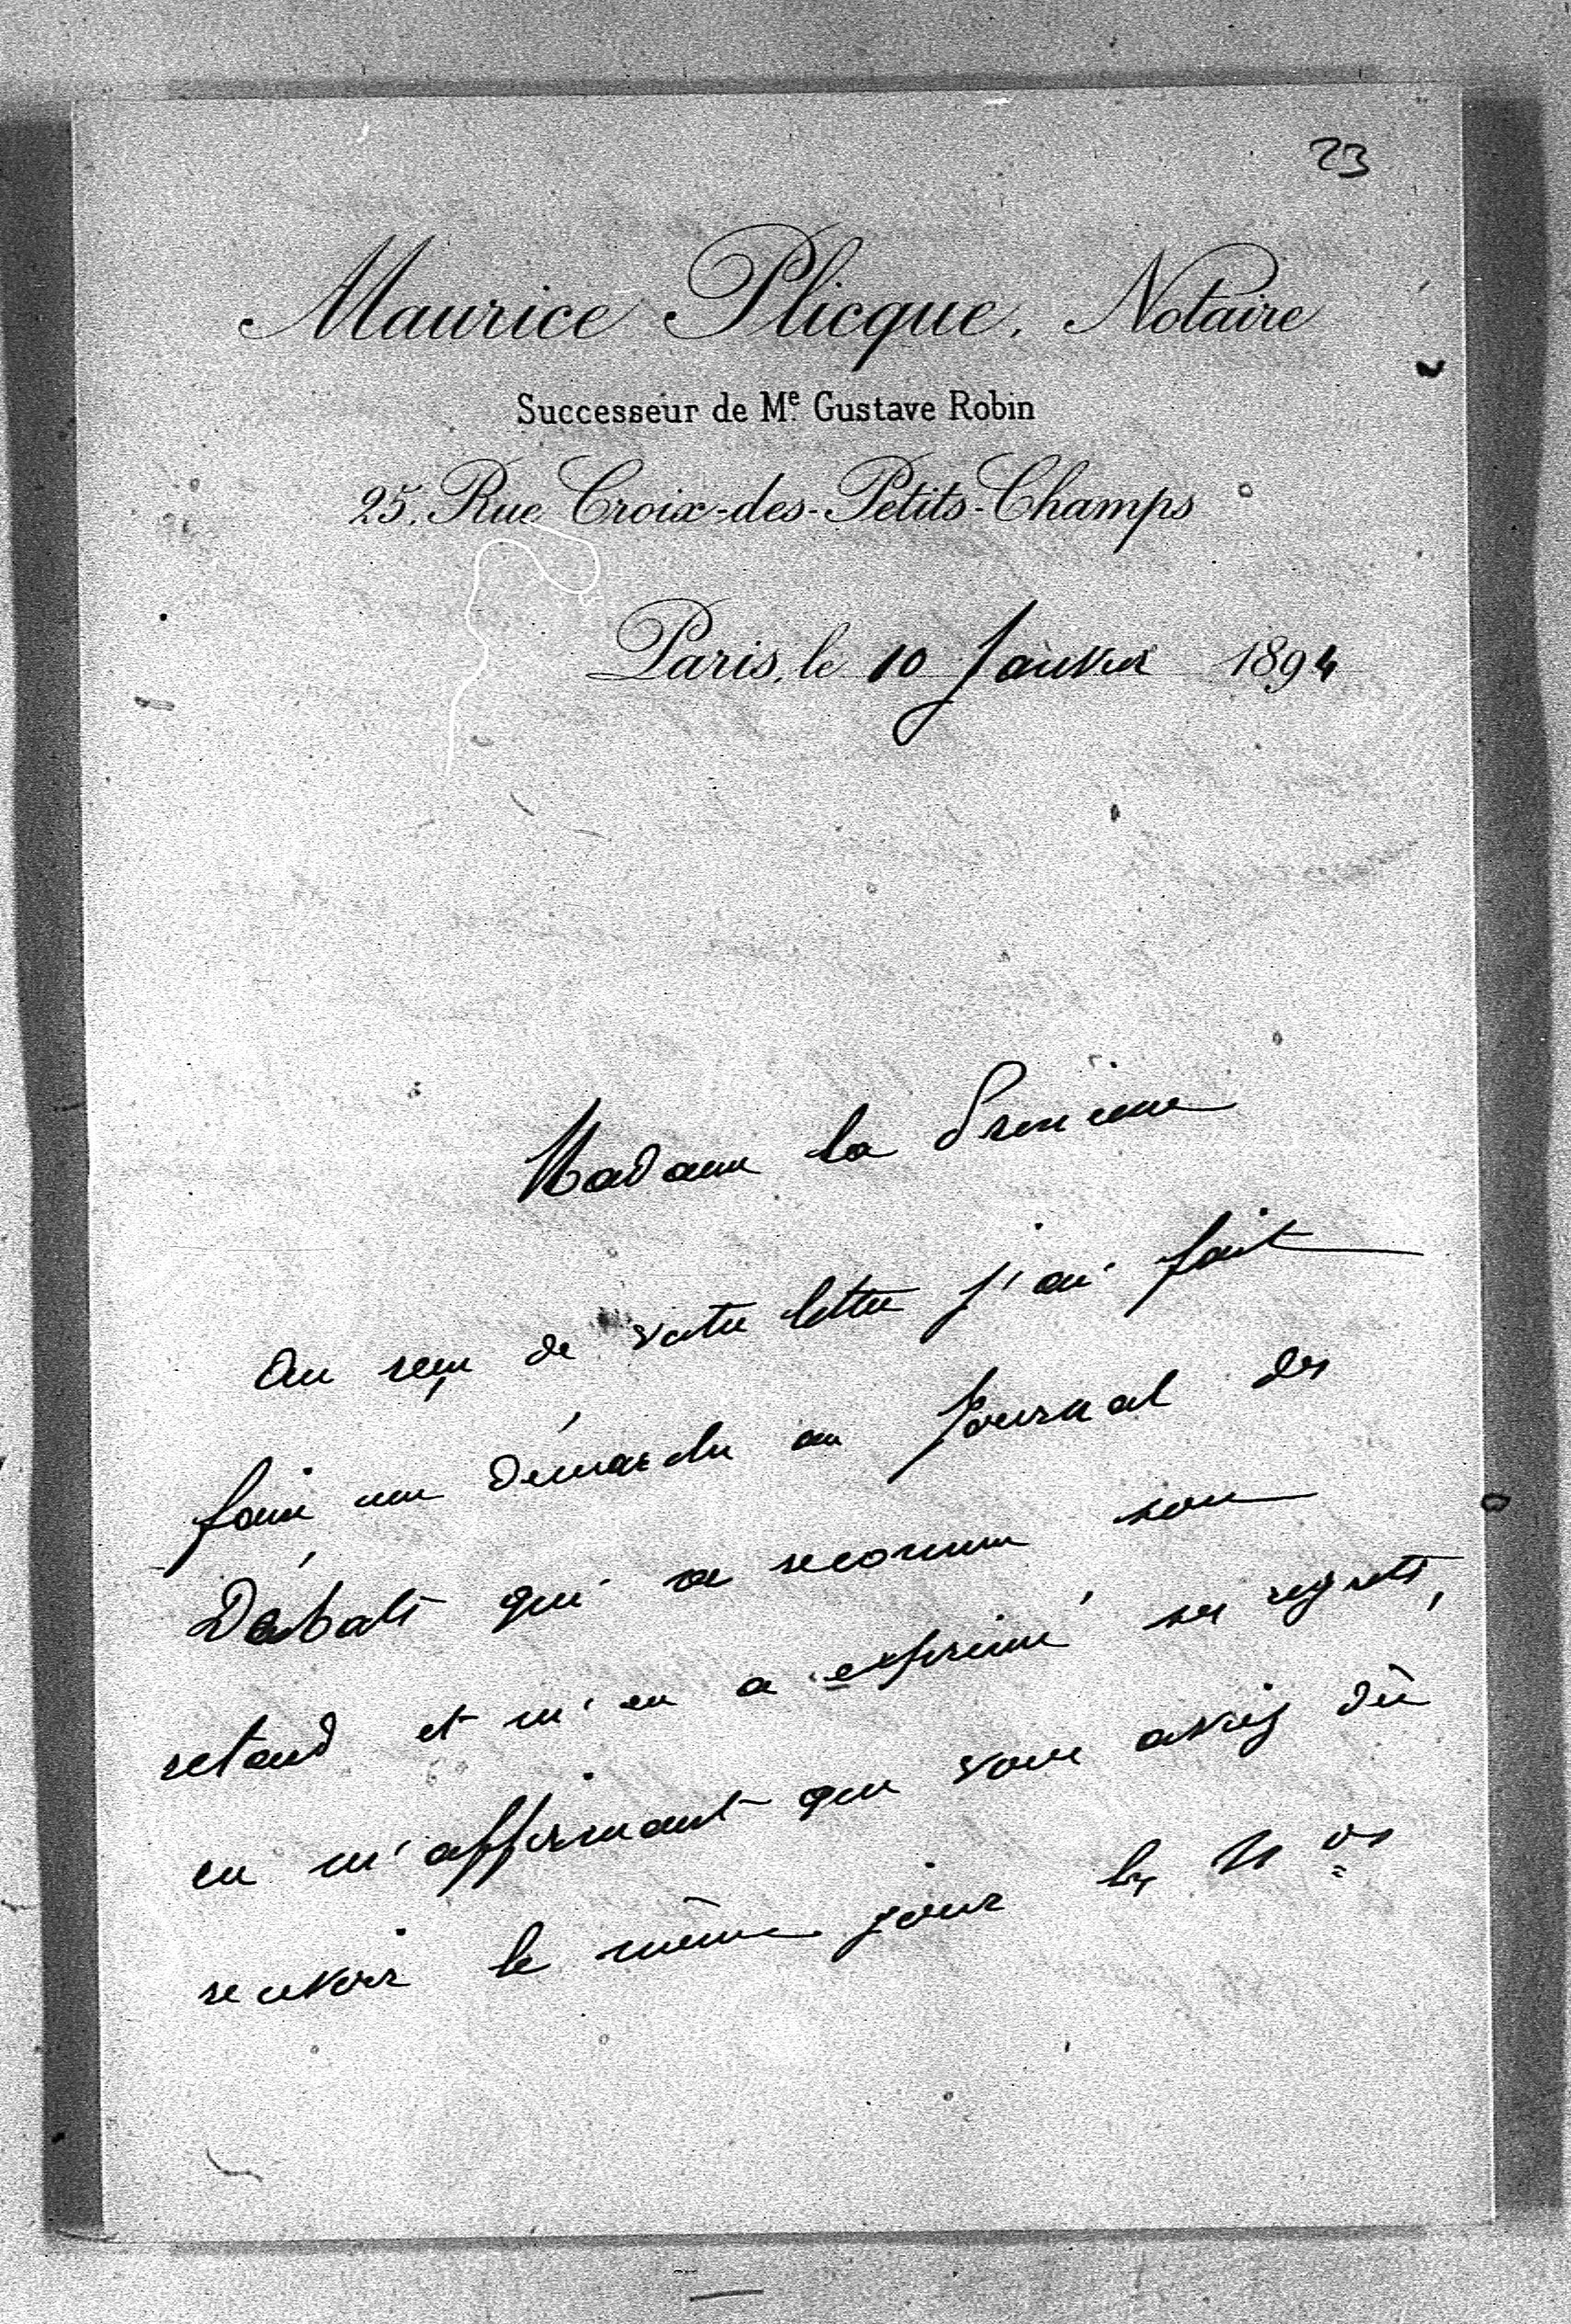 23
Maurice Plicque, Notaire
Successeur de Mᵉ Gustave Robin
25, Rue Croix-des-Petits-Champs
Paris, le 10 Janvier 1894
Madame la Princesse
Au reçu de votre lettre j'ai fait
faire une démarche au Journal des
Débats qui a reconnu son
retard et m'en a exprimé ses regrets,
en m'affirmant que vous aviez dû
recevoir le même jour les Nos